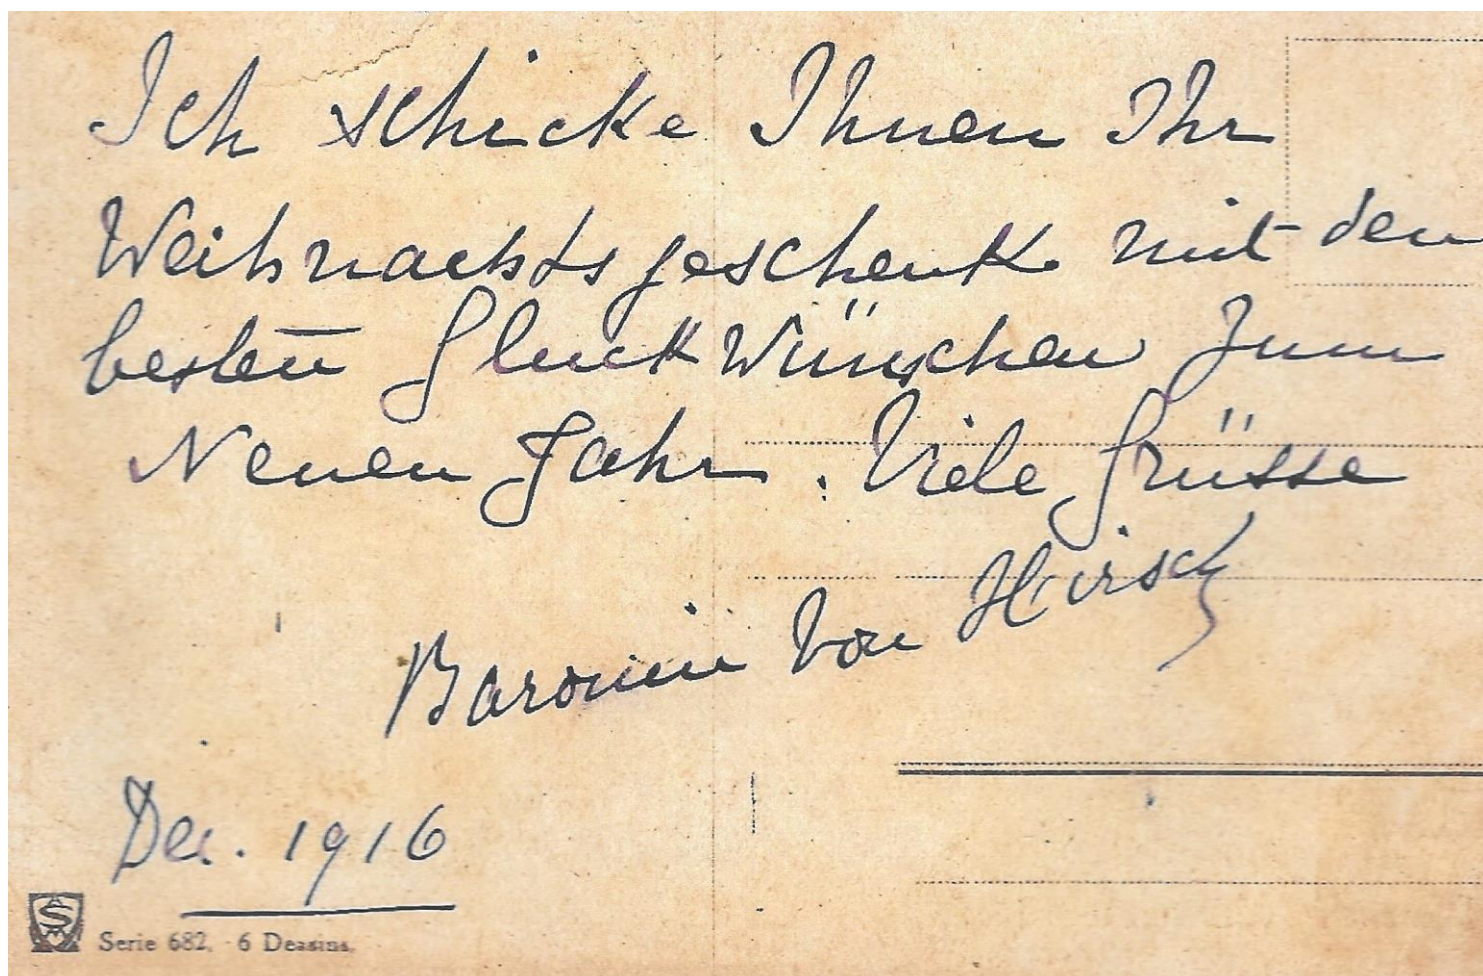 Ich schicke Ihnen Ihr
Weihnachtsgeschenk mit den
besten Glückwünschen zum
Neuen Jahr. Viele Grüsse
Baronin von Hirsch
Dec. 1916
Serie 682. 6 Dessins.